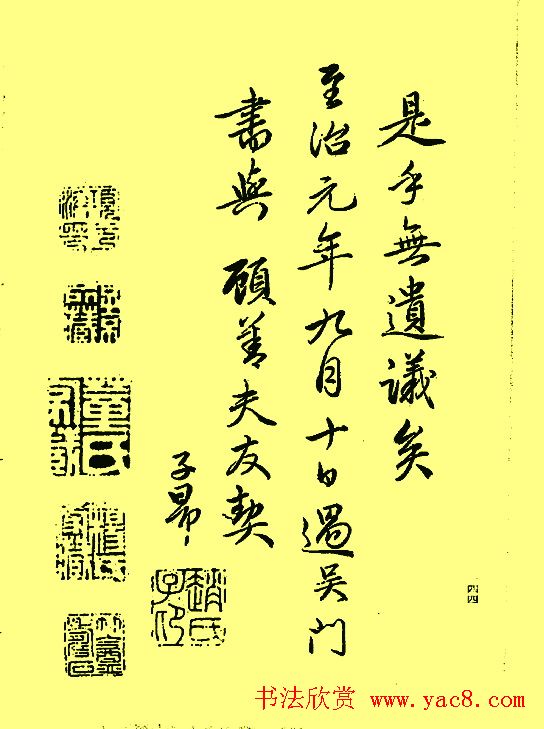 是乎無遺議矣
至治元年九月十日過吴門
書與 顧善夫友契
子昂
趙氏子印
四四
书法欣赏 www.yac8.com